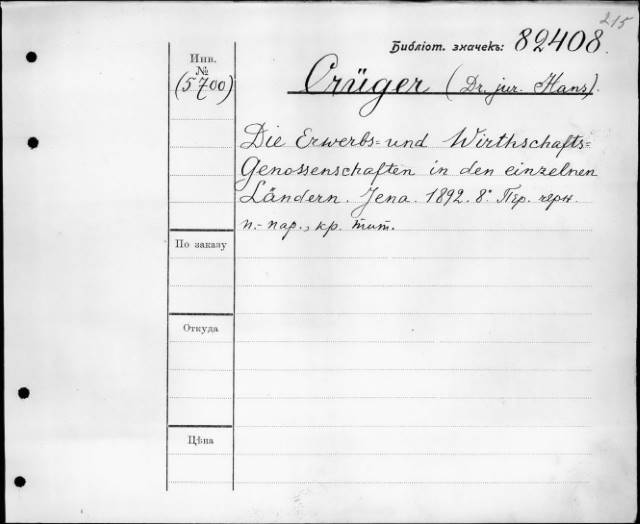 215
Библіот. значекъ: 82408.
Инв.
№
(5700)
Crüger (Dr. jur. Hans).
Die Erwerbs= und Wirthschafts=
Genossenschaften in den einzelnen
Ländern. Jena. 1892. 8°. Пер. черн.
п.-пар., кр. тит.
По заказу
Откуда
Цѣна